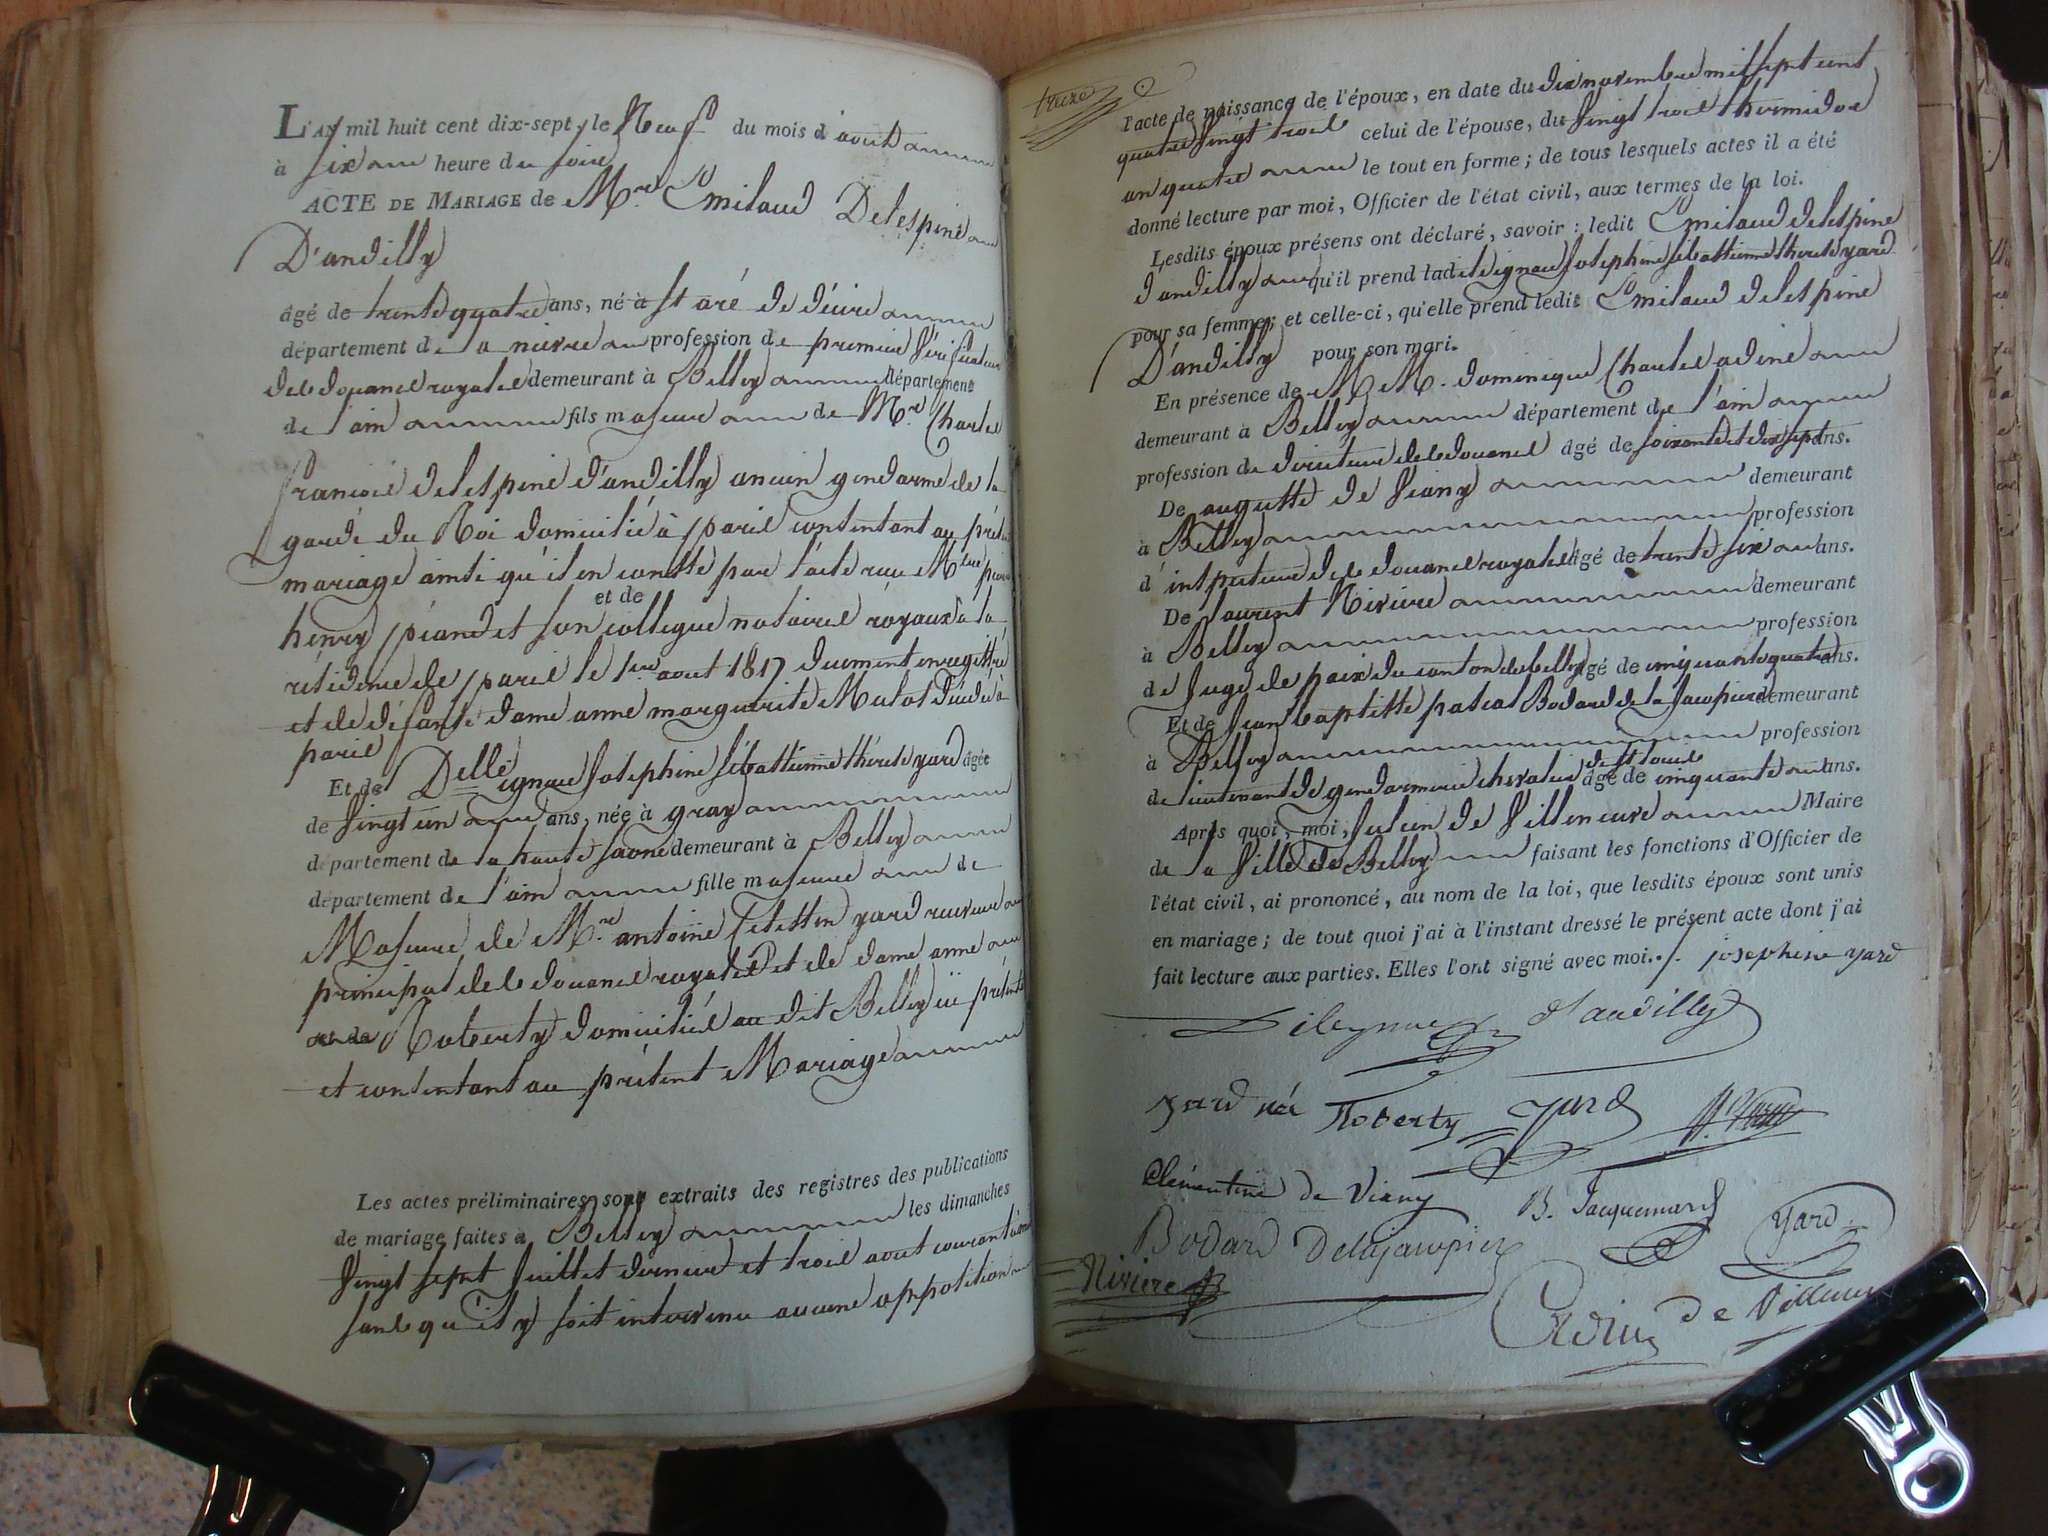 L'AN mil huit cent dix-sept, le Neuf du mois d'aout
à six heure du soire
ACTE DE MARIAGE de Mr. Emiland Delespine
D'andilly
âgé de trente quatre ans, né à st aré de décire
département de la nievre profession de premier vérificateur
des douanes royales demeurant à Belley département
de l'ain fils majeur de Mr. Charles
françois delespine d'andilly ancien gendarme de la
garde du Roi domicilié à paris consentant au présent
mariage ainsi qu'il en conste par l'acte reçu
et de
henry péan et son collegue notaires royaux à la
résidence de paris le 1er aout 1817 duement enregistré
et de défunte dame anne marguerite Mulot décédée à
paris
Et de Delle ignace Josephine sébastienne thérèse yard âgée
de vingt un ans, née à gray
département de la haute saone demeurant à Belley
département de l'ain fille majeure de
Majeure de Mr. antoine sébastien yard receveur
principal des douanes royales et de dame anne
Roberty domiciliés au dit Belley ici présents
et consentant au présent Mariage
Les actes préliminaires sont extraits des registres des publications
de mariage faites à Belley les dimanches
vingt sept juillet dernier et trois aout courant
sans qu'il y soit intervenu aucune opposition
treize
l'acte de naissance de l'époux, en date du dix novembre mil sept cent
quatre vingt trois celui de l'épouse, du vingt trois thermidor
an quatre le tout en forme; de tous lesquels actes il a été
donné lecture par moi, Officier de l'état civil, aux termes de la loi.
Lesdits époux présens ont déclaré, savoir : ledit Emiland delespine
d'andilly qu'il prend ladite ignace Josephine sébastienne thérèse yard
pour sa femme; et celle-ci, qu'elle prend ledit Emiland delespine
D'andilly pour son mari.
En présence de M. M. dominique Charles adine
demeurant à Belley département de l'ain
profession de directeur des douanes âgé de soixante et dix sept ans.
De auguste de viany demeurant
à Belley profession
d'inspecteur des douanes royales âgé de trente six ans.
De laurent Nivière demeurant
à Belley profession
de Juge de paix du canton de belley âgé de cinquante quatre ans.
Et de Jean baptiste pascal Bodard de la Jacopiere demeurant
à Belley profession
de st louis
de lieutenant de gendarmerie chevalier âgé de cinquante ans.
Après quoi, moi, Julien de Villeneuve Maire
de la Ville de Belley faisant les fonctions d'Officier de
l'état civil, ai prononcé, au nom de la loi, que lesdits époux sont unis
en mariage; de tout quoi j'ai à l'instant dressé le présent acte dont j'ai
fait lecture aux parties. Elles l'ont signé avec moi. josephine yard
Delespine d'andilly
yard née Roberty yard
Clémentine de Viany B. Jacquemard yard
Bodard Delajacopiere
Nivière
de Villeneuve